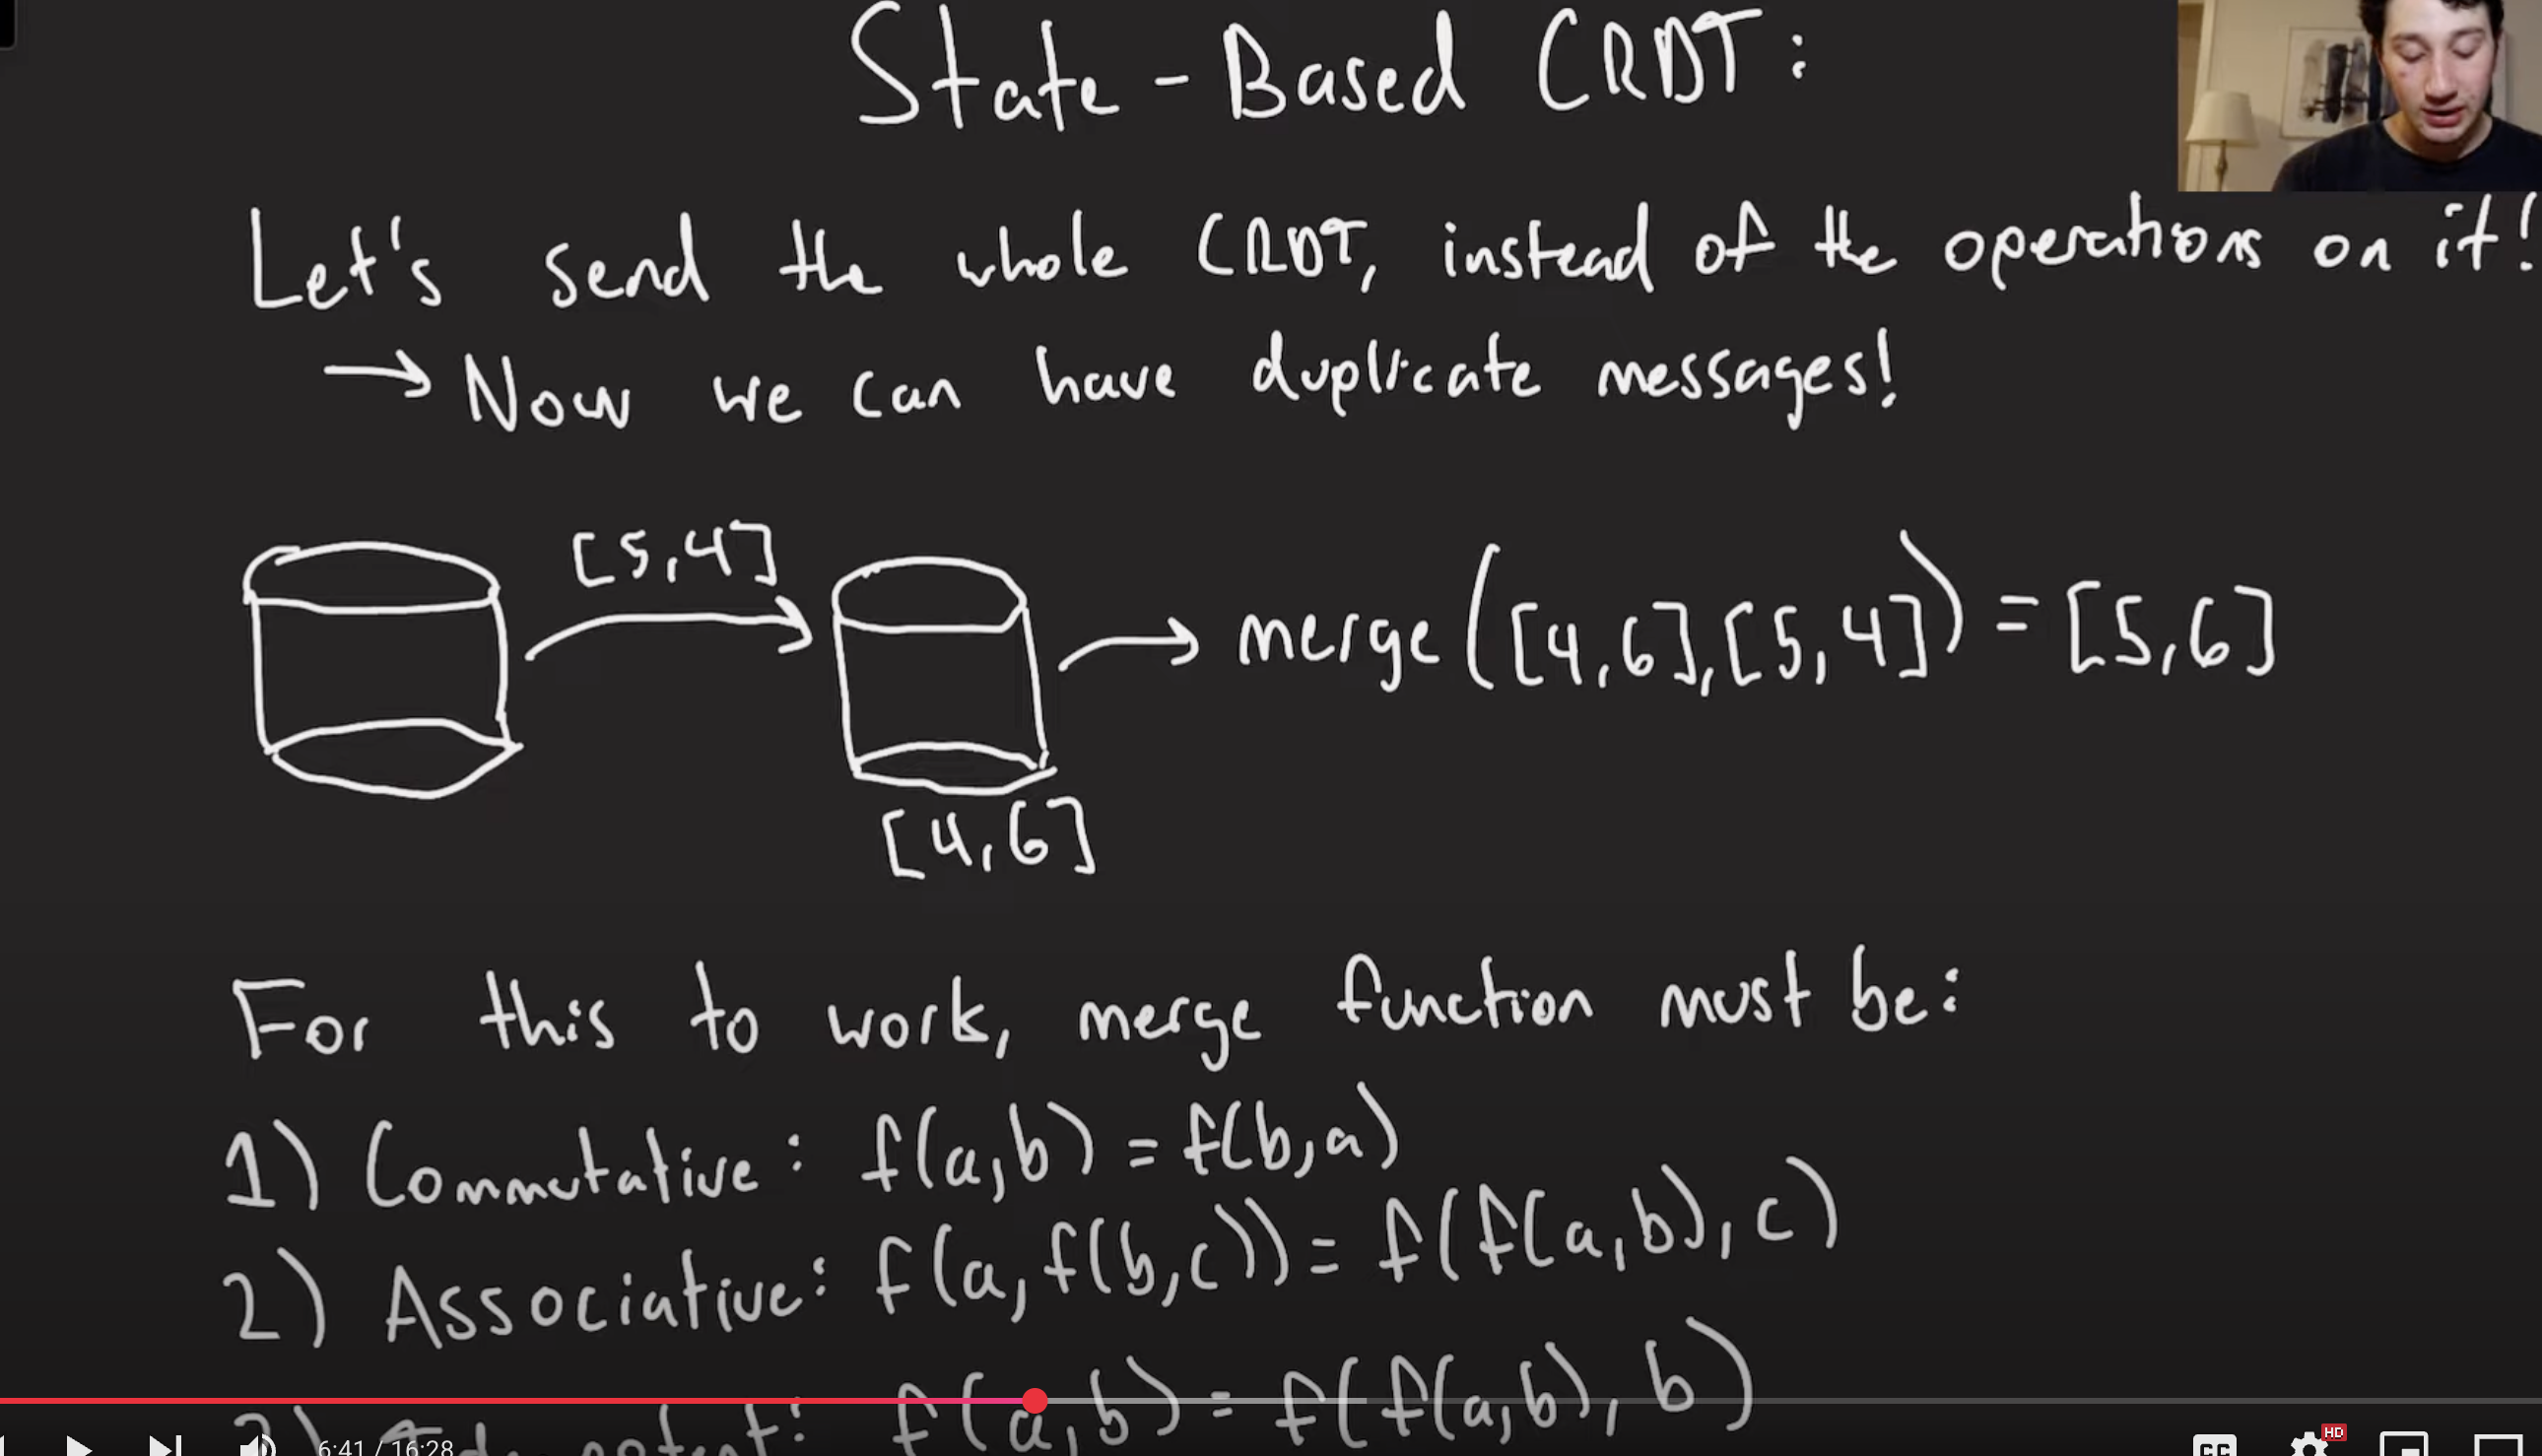 State-Based CRDT:
Let's send the whole CRDT, instead of the operations on it!
→ Now we can have duplicate messages!
[5,4]
→ merge([4,6],[5,4]) = [5,6]
[4,6]
For this to work, merge function must be:
1) Commutative: f(a,b) = f(b,a)
2) Associative: f(a, f(b,c)) = f(f(a,b), c)
f(a,b) = f(f(a,b), b)
6:41 / 16:28
CC
HD